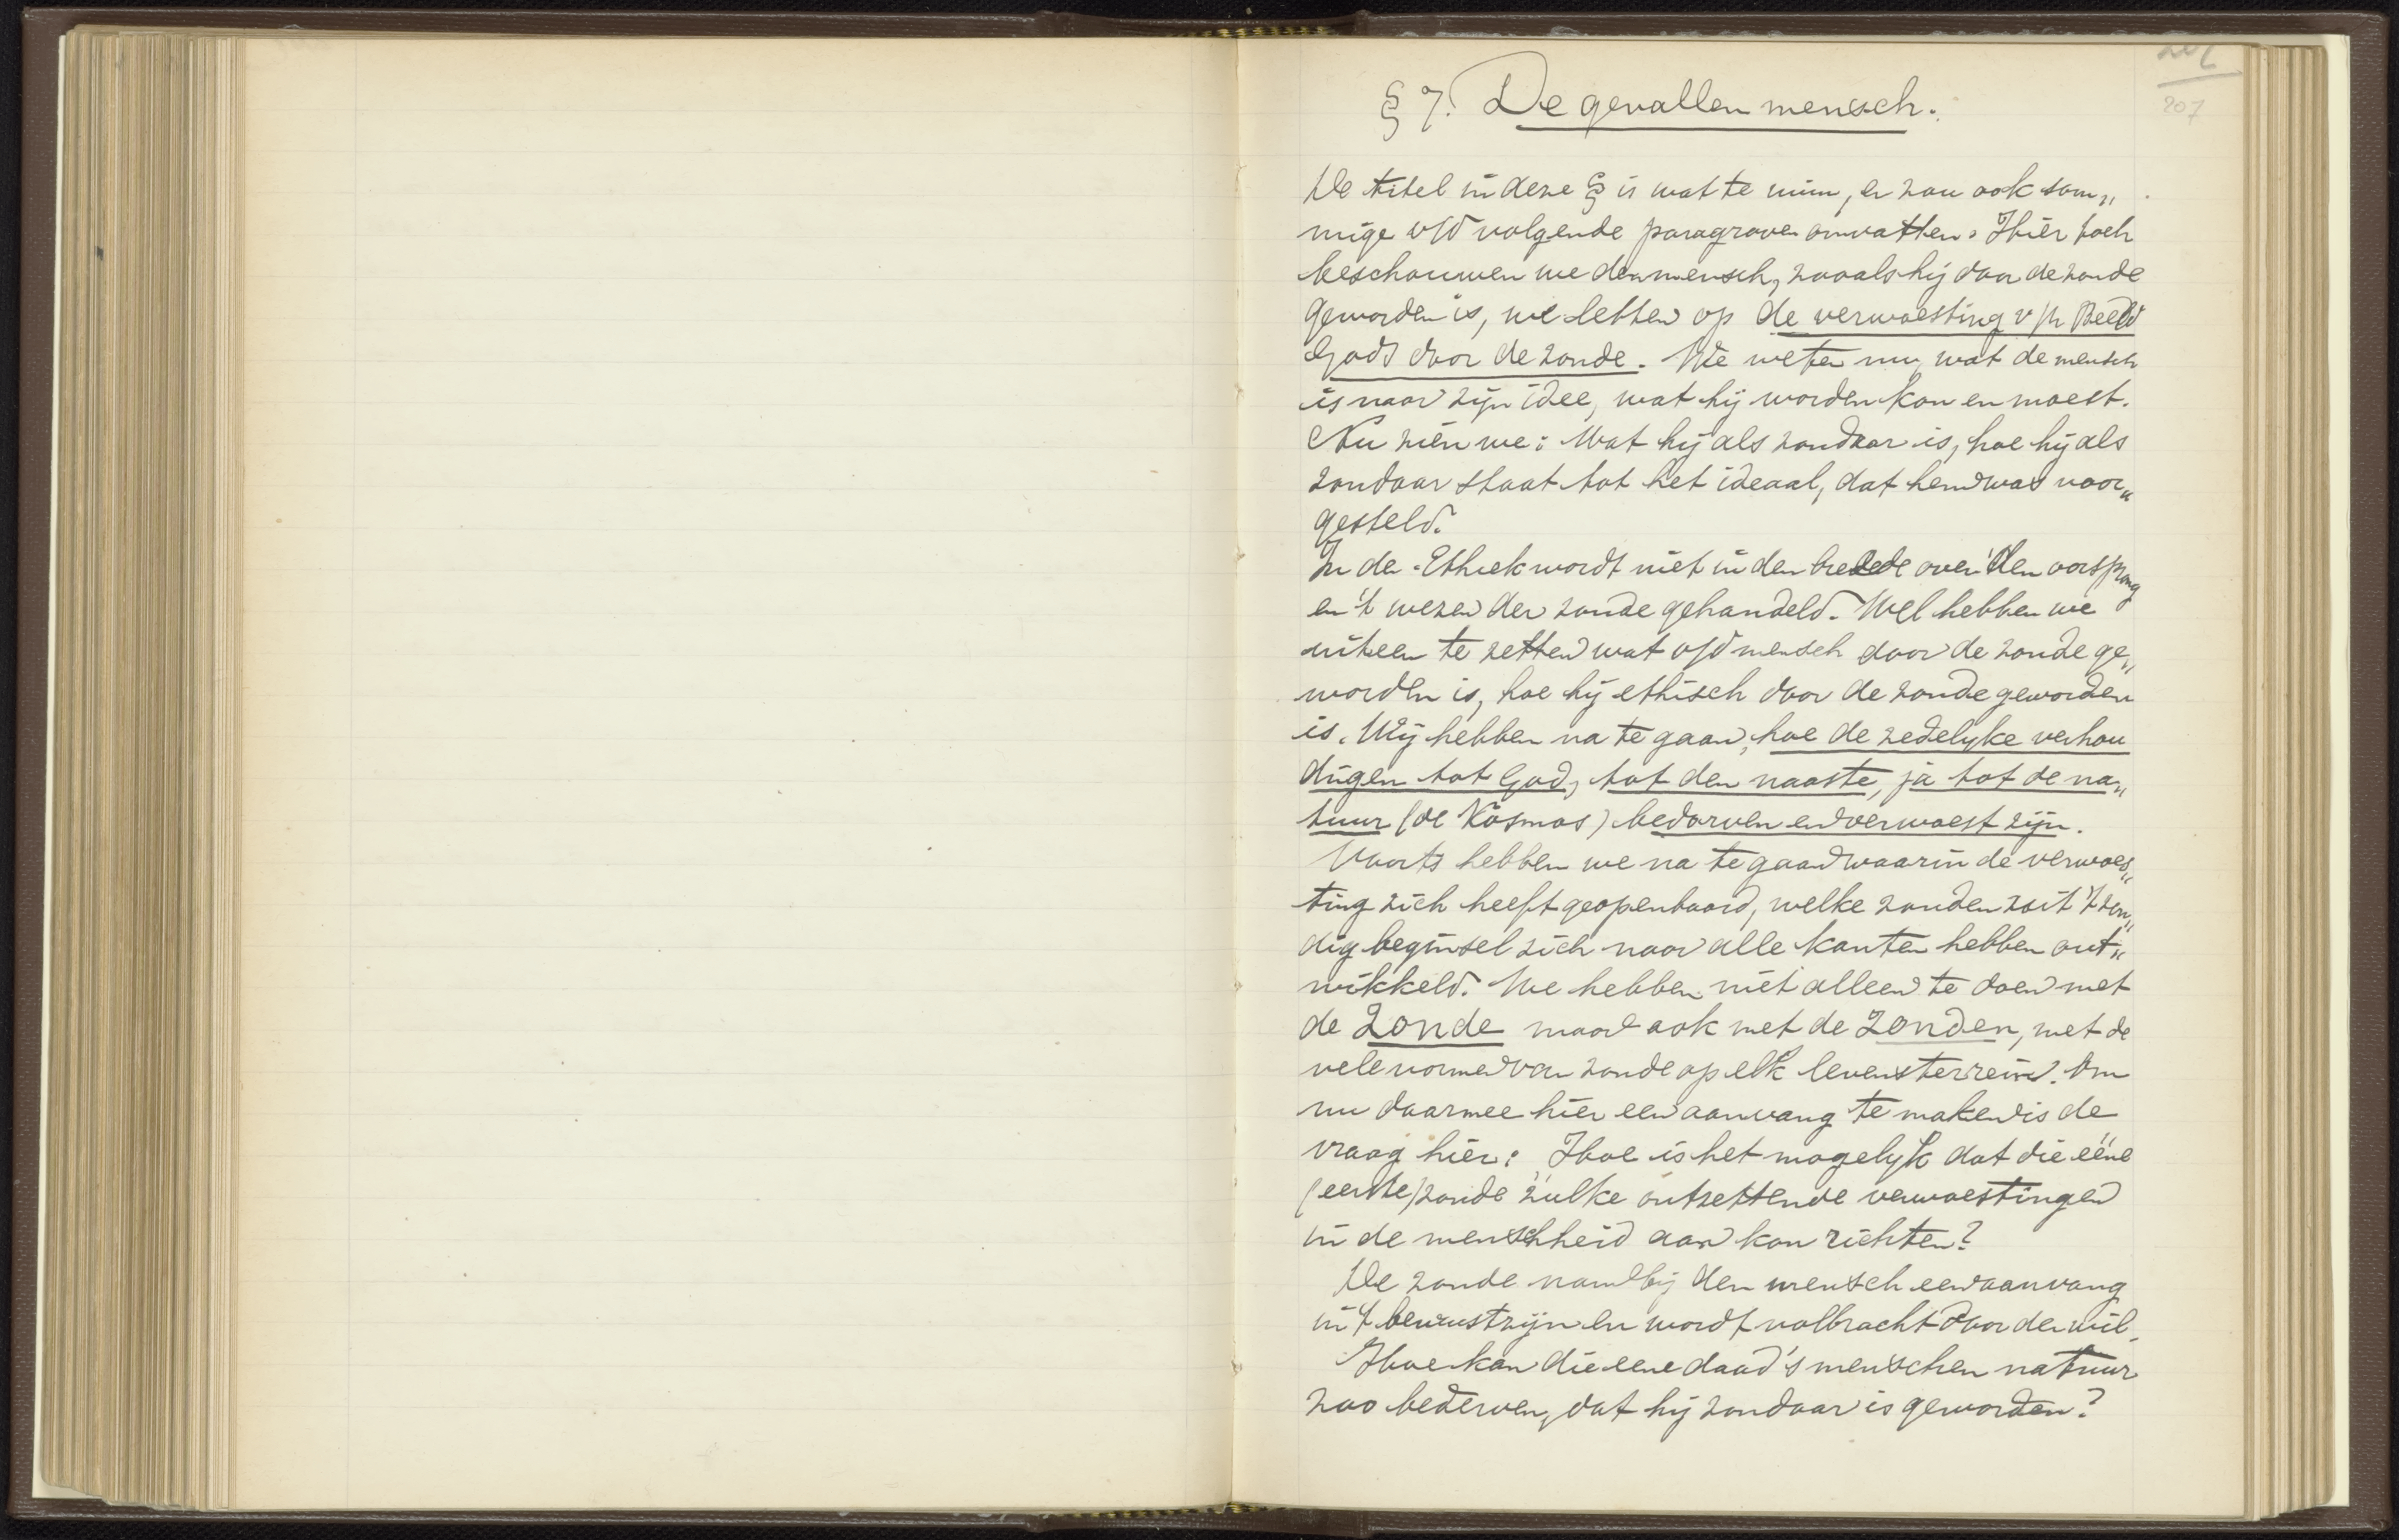 207
§ 7. De gevallen mensch.
De titel in deze § is wat te ruim, er zou ook som„
mige v/d volgende paragraven omvatten. Hier toch
beschouwen we den mensch, zooals hij door de zonde
geworden is, we letten op de verwoesting v/h Beeld
Gods door de zonde. We weten nu, wat de mensch
is naar zijn idee, wat hij worden kon en moest.
Nu zien we: Wat hij als zondaar is, hoe hij als
zondaar staat tot het ideaal, dat hem was voor„
gesteld.
In de Ethiek wordt niet in den breede over den oorsprong
en 't wezen der zonde gehandeld. Wel hebben we
uiteen te zetten wat v/d mensch door de zonde ge„
worden is, hoe hij ethisch door de zonde geworden
is. Wij hebben na te gaan, hoe de zedelyke verhou
dingen tot God, tot den naaste, ja tot de na„
tuur (de Kosmos) bedorven en verwoest zijn.
Voorts hebben we na te gaan waarin de verwoes„
ting zich heeft geopenbaard, welke zonden uit 't zon„
dig beginsel zich naar alle kanten hebben ont„
wikkeld. We hebben niet alleen te doen met
de Zonde maar ook met de Zonden, met de
vele vormen van zonde op elk levensterrein. Om
nu daarmee hier een aanvang te maken is de
vraag hier: Hoe is het mogelyk dat die ééne
(eerste) zonde zulke ontzettende verwoestingen
in de menschheid aan kon richten?
De zonde nam bij den mensch een aanvang
in 't bewustzijn en wordt volbracht door den wil.
Hoe kan die eene daad 's menschen natuur
zoo bederven, dat hij zondaar is geworden?